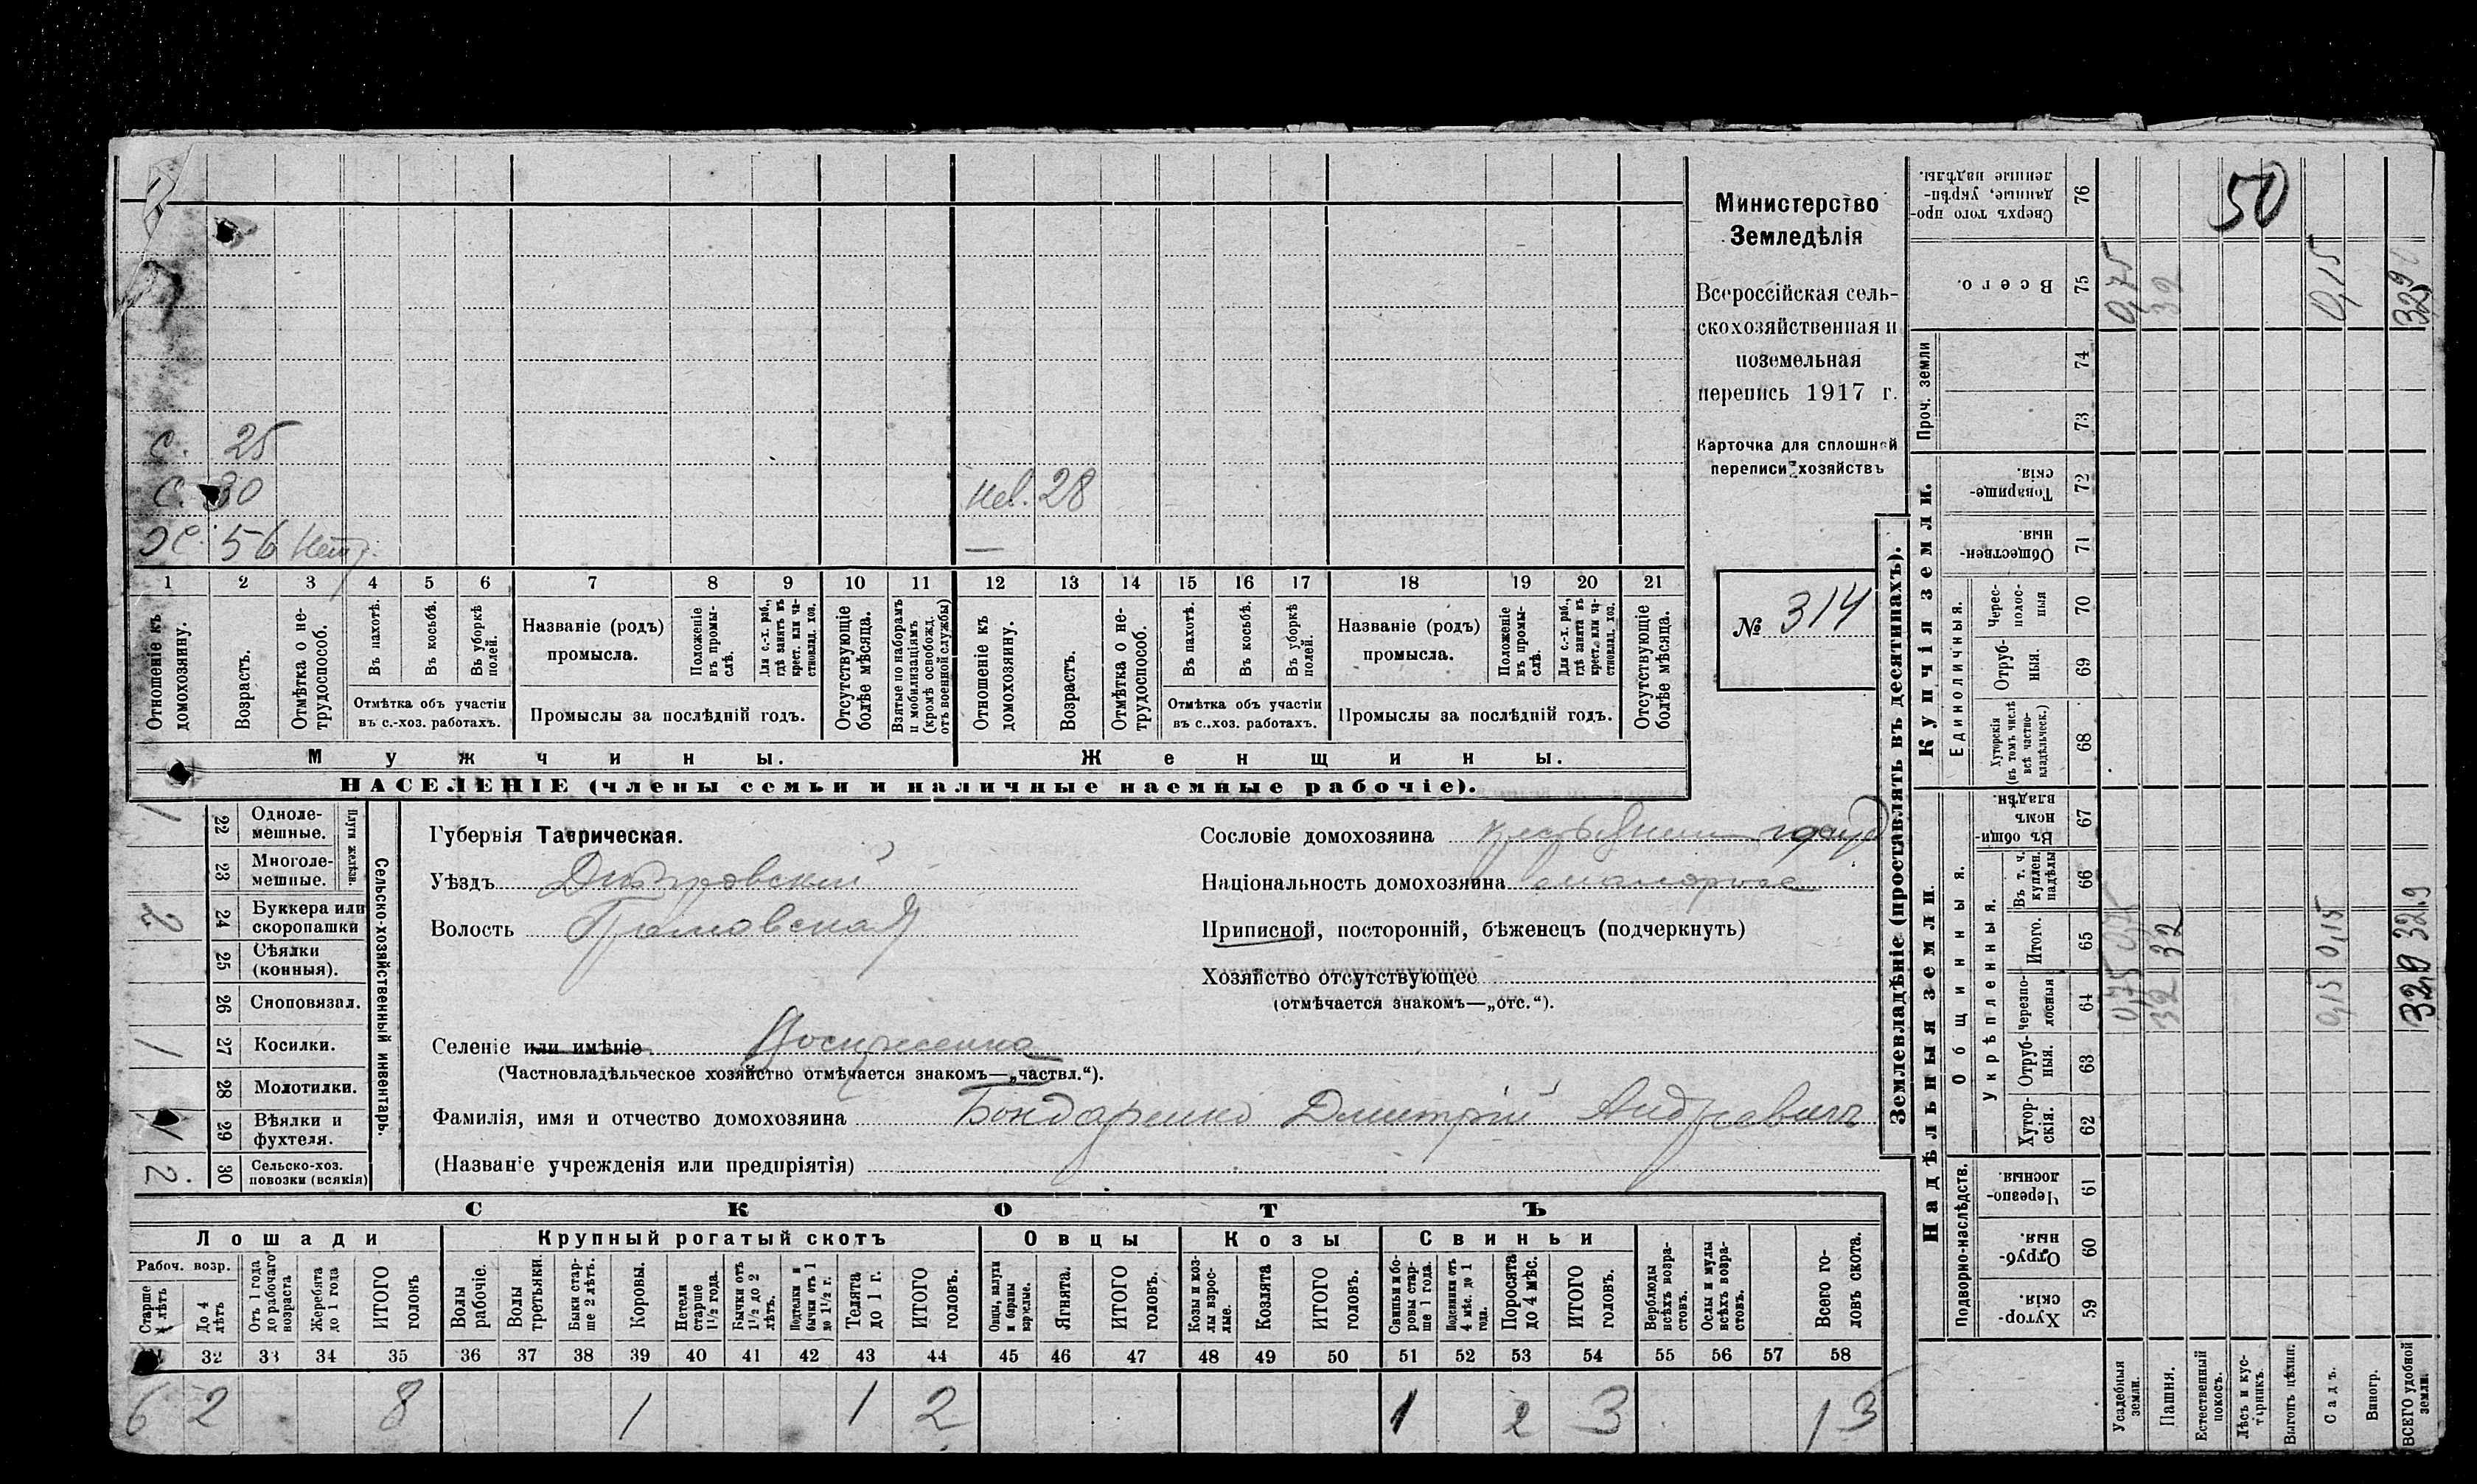 Министерство
Земледѣлія
Всероссійская сель-
скохозяйственная и
поземельная
перепись 1917 г.
Карточка для сплошной
переписи хозяйствъ
№ 314
С. 25
С. 30
нев. 28
Х. 56 нетр.
—
1 2 3 4 5 6 7 8 9 10 11 12 13 14 15 16 17 18 19 20 21
Отношеніе къ домохозяину.
Возрастъ.
Отмѣтка о не-трудоспособ.
Въ пахотѣ.
Въ косьбѣ.
Въ уборкѣ полей.
Отмѣтка объ участіи въ с.-хоз. работахъ.
Названіе (родъ) промысла.
Положеніе въ промы-слѣ.
Для с.-х. раб., гдѣ занятъ въ крест. или ча-стновлад. хоз.
Промыслы за послѣдній годъ.
Отсутствующіе болѣе мѣсяца.
Взятые по наборамъ и мобилизаціямъ (кромѣ освобожд. отъ военной службы)
Отношеніе къ домохозяину.
Возрастъ.
Отмѣтка о не-трудоспособ.
Въ пахотѣ.
Въ косьбѣ.
Въ уборкѣ полей.
Отмѣтка объ участіи въ с.-хоз. работахъ.
Названіе (родъ) промысла.
Положеніе въ промы-слѣ.
Для с.-х. раб., гдѣ занята въ крест. или ча-стновлад. хоз.
Промыслы за послѣдній годъ.
Отсутствующіе болѣе мѣсяца.
Мужчины.
Женщины.
НАСЕЛЕНІЕ (члены семьи и наличные наемные рабочіе).
Сельско-хозяйственный инвентарь.
Плуги желѣзн.
1 22 Одноле-мешные.
23 Многоле-мешные.
2 24 Буккера или скоропашки
25 Сѣялки (конныя).
26 Сноповязал.
1 27 Косилки.
28 Молотилки.
1 29 Вѣялки и фухтеля.
2 30 Сельско-хоз. повозки (всякія)
Губернія Таврическая.
Уѣздъ Днѣпровскій
Волость
Селеніе или имѣніе Воскресенка
(Частновладѣльческое хозяйство отмѣчается знакомъ—„частвл.“).
Фамилія, имя и отчество домохозяина Бондаренко Дмитрій Андреевичъ
(Названіе учрежденія или предпріятія)
Сословіе домохозяина
Національность домохозяина малороссъ
Приписной, посторонній, бѣженецъ (подчеркнуть)
Хозяйство отсутствующее
(отмѣчается знакомъ—„отс.“).
СКОТЪ
Лошади
Крупный рогатый скотъ
Овцы
Козы
Свиньи
Рабоч. возр.
Старше 4 лѣтъ
До 4 лѣтъ
Отъ 1 года до рабочаго возраста
Жеребята до 1 года
ИТОГО головъ
Волы рабочіе.
Волы третьяки.
Быки стар-ше 2 лѣтъ.
Коровы.
Нетели старше 1½ года.
Бычки отъ 1½ до 2 лѣтъ.
Подтелки и бычки отъ 1 до 1½ г.
Телята до 1 г.
ИТОГО головъ.
Овцы, валухи и бараны взрослые.
Ягнята.
ИТОГО головъ.
Козы и коз-лы взрос-лые.
Козлята
ИТОГО головъ.
Свиньи и бо-ровы стар-ше 1 года.
Подсвинки отъ 4 мѣс. до 1 года.
Поросята до 4 мѣс.
ИТОГО головъ.
Верблюды всѣхъ возра-стовъ.
Ослы и мулы всѣхъ возра-стовъ.
Всего го-ловъ скота.
32 33 34 35 36 37 38 39 40 41 42 43 44 45 46 47 48 49 50 51 52 53 54 55 56 57 58
6 2 8 1 1 2 1 2 3 13
Землевладѣніе (проставлять въ десятинахъ).
Надѣльныя земли.
Купчія земли.
Проч. земли
Подворно-наслѣдств.
Общинныя.
Укрѣпленныя.
Единоличныя.
Хутор-скія. 59
Отруб-ныя. 60
Черезпо-лосныя 61
Хутор-скія. 62
Отруб-ныя. 63
Черезпо-лосныя 64
Итого. 65
Въ т. ч. куплен. надѣлы 66
Въ общи-номъ владѣн. 67
Хуторскія (въ томъ числѣ всѣ частно-владѣльческ.) 68
Отруб-ныя. 69
Черес-полос-ныя 70
Обществен-ныя 71
Товарище-скія. 72
73
74
Всего. 75
Сверхъ того про-данные, укрѣп-ленные надѣлы. 76
50
Усадебныя земли. 0,75 0,75 0,75
Пашня. 32 32 32
Естественный покосъ.
Лѣсъ и кус-тарникъ.
Выгонъ цѣлин.
Садъ. 0,15 0,15 0,15
Виногр.
ВСЕГО удобной земли. 32,9 32,9 32,9